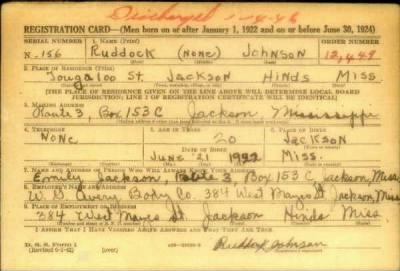 Discharged 1-4-46
REGISTRATION CARD—(Men born on or after January 1, 1922 and on or before June 30, 1924)
SERIAL NUMBER 1. NAME (Print) ORDER NUMBER
N-156 RUDDOCK (NONE) JOHNSON 12,449
(First) (Middle) (Last)
2. PLACE OF RESIDENCE (Print)
Tougaloo St. JACKSON HINDS MISS.
[THE PLACE OF RESIDENCE GIVEN ON THE LINE ABOVE WILL DETERMINE LOCAL BOARD
JURISDICTION; LINE 2 OF REGISTRATION CERTIFICATE WILL BE IDENTICAL]
3. MAILING ADDRESS
Route 3, Box 153 C Jackson, Mississippi
4. TELEPHONE 5. AGE IN YEARS 6. PLACE OF BIRTH
NONE 20 JACKSON
DATE OF BIRTH
JUNE 21 1922 MISS.
7. NAME AND ADDRESS OF PERSON WHO WILL ALWAYS KNOW YOUR ADDRESS
Emily Jackson, Route 3 Box 153 C, Jackson, Miss
8. EMPLOYER'S NAME AND ADDRESS
Avery Body Co. 384 West Mayes St. Jackson, Miss
9. PLACE OF EMPLOYMENT OR BUSINESS
384 West Mayes St. Jackson Hinds Miss.
I AFFIRM THAT I HAVE VERIFIED ABOVE ANSWERS AND THAT THEY ARE TRUE.
D. S. S. Form 1
Ruddock Johnson